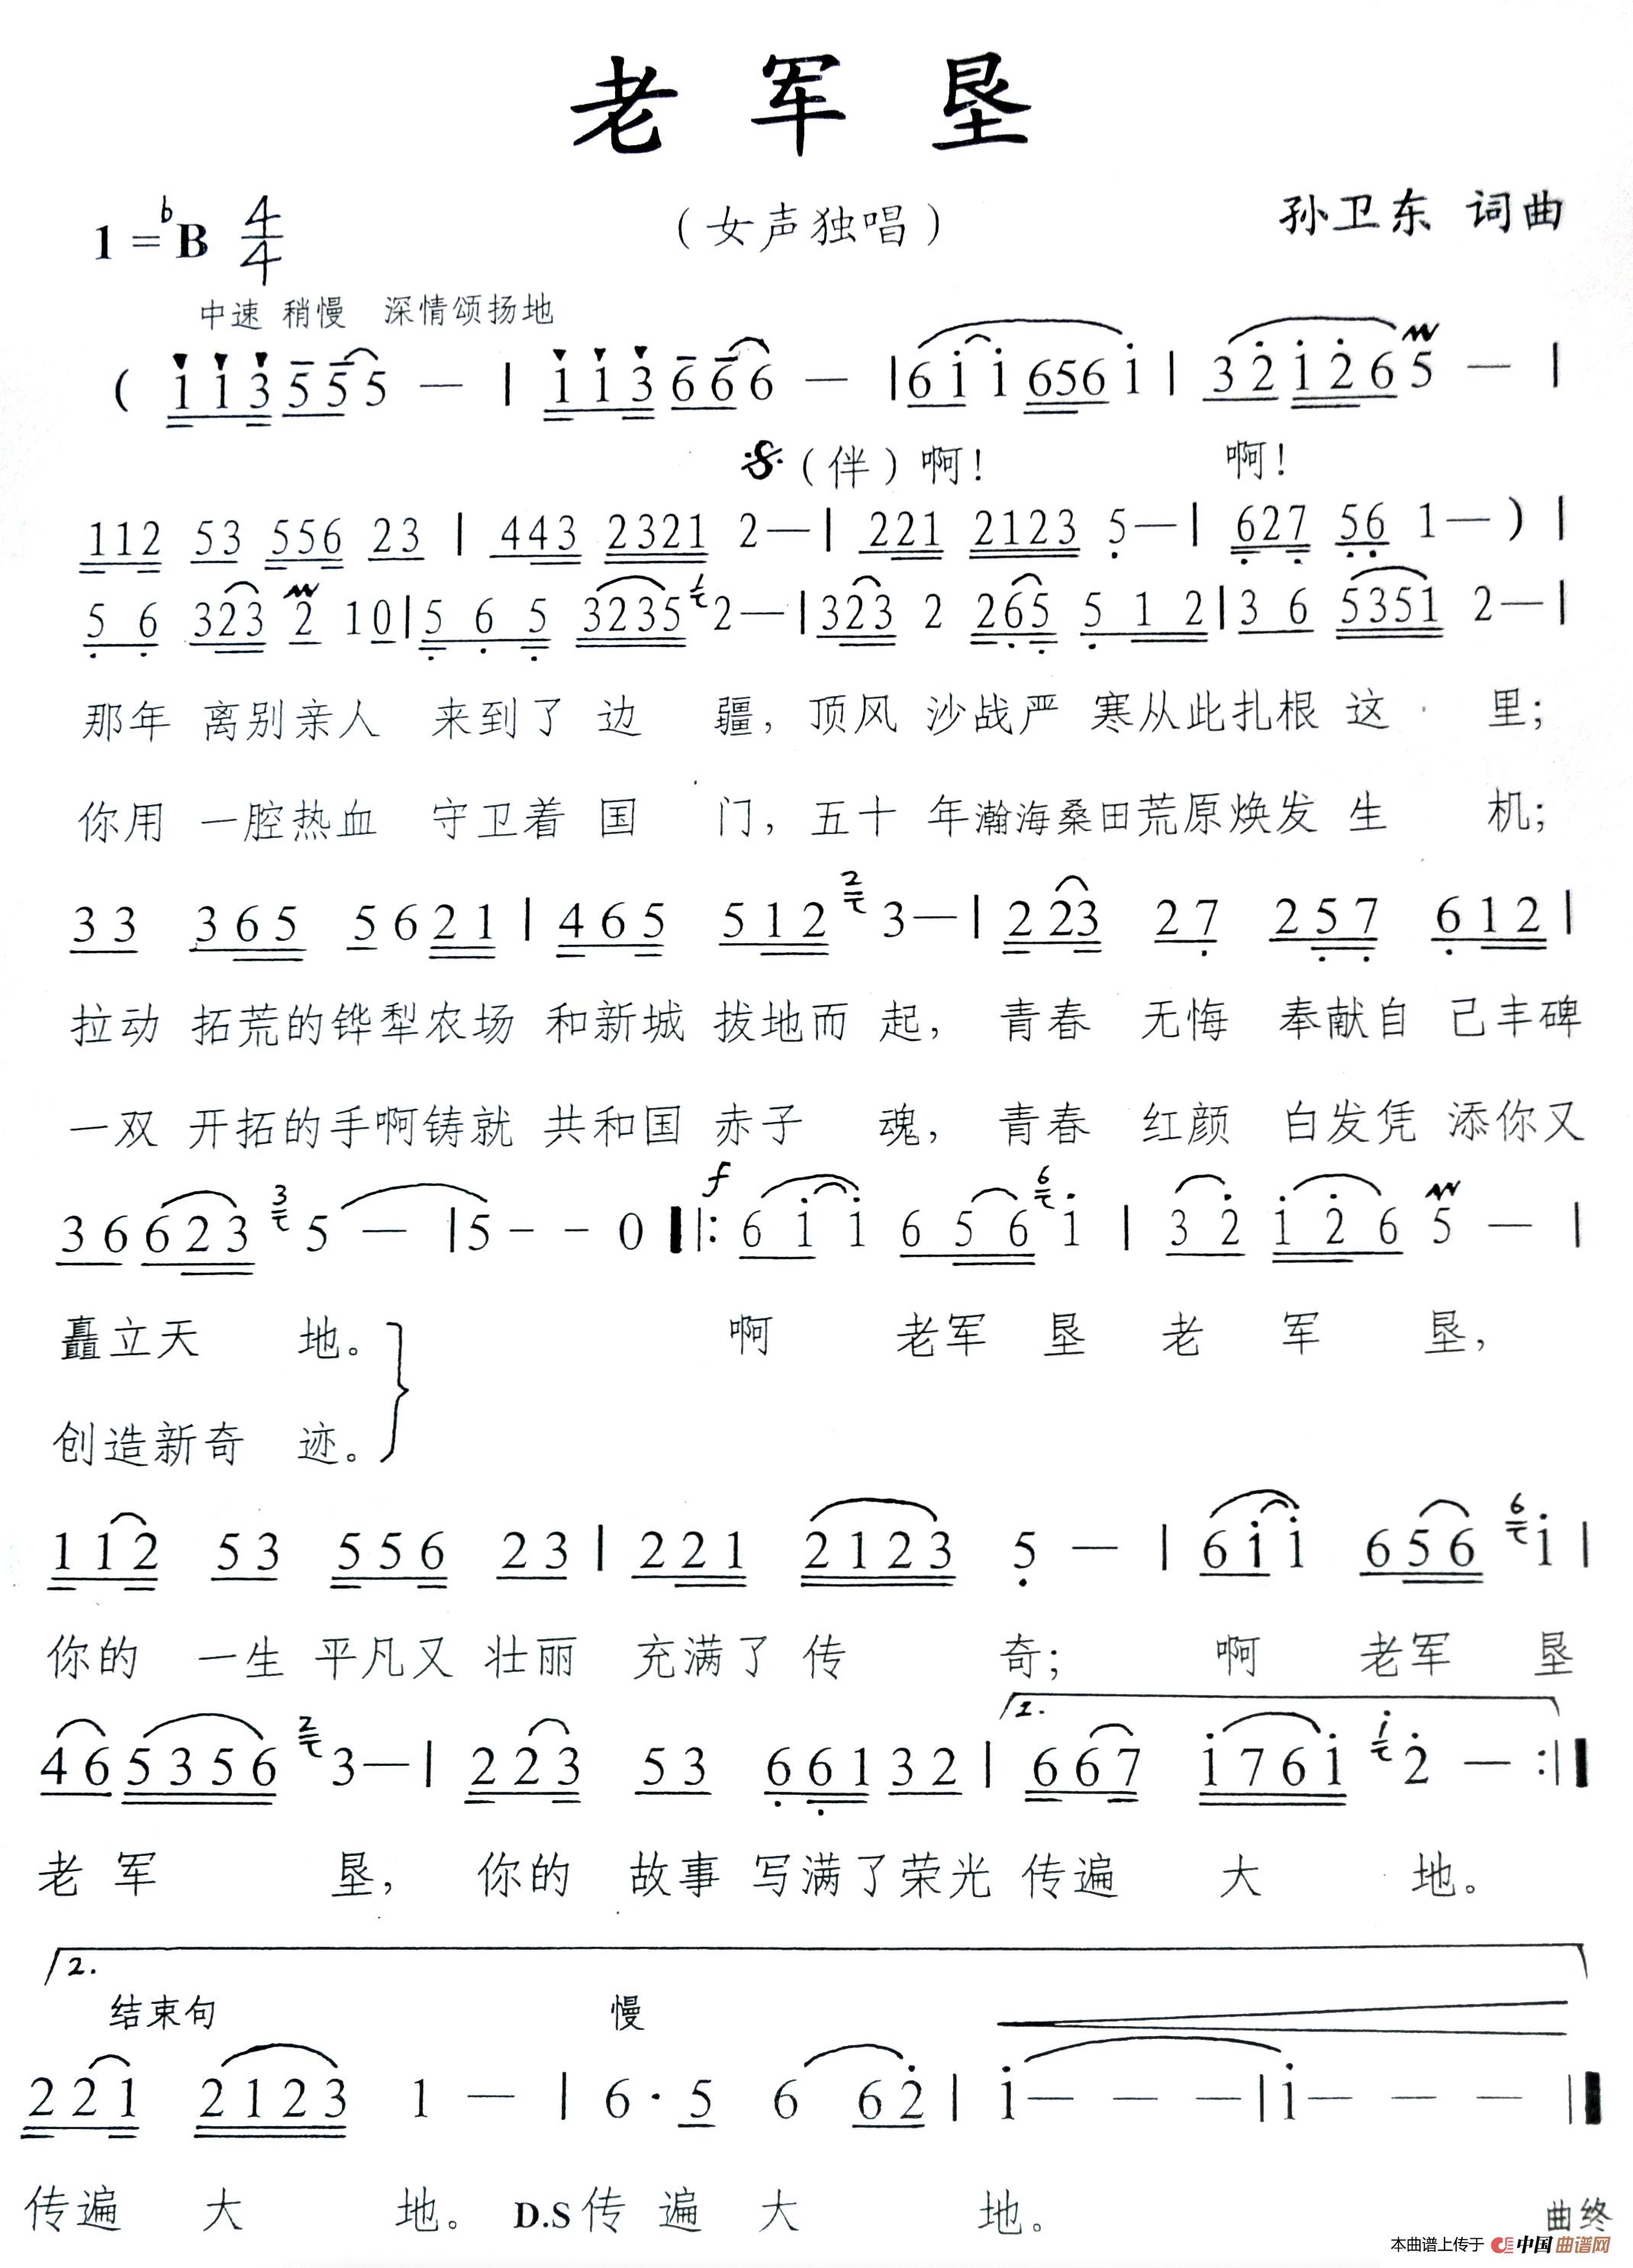 老军垦
1=ᵇB 4/4
（女声独唱）
孙卫东 词曲
中速 稍慢 深情颂扬地
( 1̇ 1̇ 3 5 5 5 — | 1̇ 1̇ 3 6 6 6 — | 6 1̇ 1̇ 6 5 6 1̇ | 3 2̇ 1̇ 2̇ 6 5 — |
(伴) 啊! 啊!
112 53 556 23 | 443 2321 2— | 221 2123 5— | 627 56 1— ) |
5 6 323 2 10 | 5 6 5 3235 2— | 323 2 265 5 1 2 | 3 6 5351 2— |
那年 离别亲人 来到了 边 疆，顶风 沙战严 寒从此扎根 这 里；
你用 一腔热血 守卫着 国 门，五十 年瀚海桑田荒原焕发 生 机；
33 365 5621 | 465 512 2 3— | 223 27 257 612 |
拉动 拓荒的铧犁农场 和新城 拔地而 起， 青春 无悔 奉献自 己丰碑
一双 开拓的手啊铸就 共和国 赤子 魂， 青春 红颜 白发凭 添你又
36 623 3 5 — | 5 - - 0 |: f 6 1̇ 1̇ 6 5 6 6 1̇ | 3 2̇ 1̇ 2̇ 6 5 — |
矗立天 地。 啊 老军 垦 老 军 垦，
创造新奇 迹。
112 53 556 23 | 221 2123 5 — | 6 1̇ 1̇ 656 6 1̇ |
你的 一生 平凡又 壮丽 充满了 传 奇； 啊 老军 垦
1.
46 5356 2 3— | 223 53 661 32 | 667 1̇761̇ 1̇ 2̇ — :|
老 军 垦， 你的 故事 写满了荣光 传遍 大 地。
2.
结束句 慢
221 2123 1 — | 6· 5 6 62̇ | 1̇— — — | 1̇— — — |
传遍 大 地。 D.S 传 遍 大 地。 曲终
本曲谱上传于 中国曲谱网